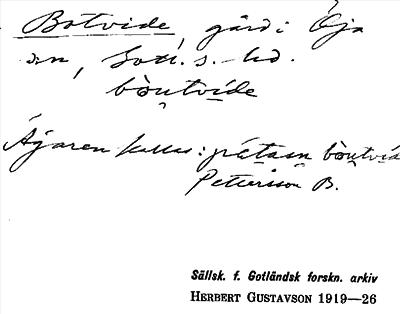 Botvide, gård i Öja
sn, Gotl. s. hd.
bòutvide
Ägaren kallas: pétasn bòutvid
Petersson B.
Sällsk. f. Gotländsk forskn. arkiv
HERBERT GUSTAVSON 1919—26